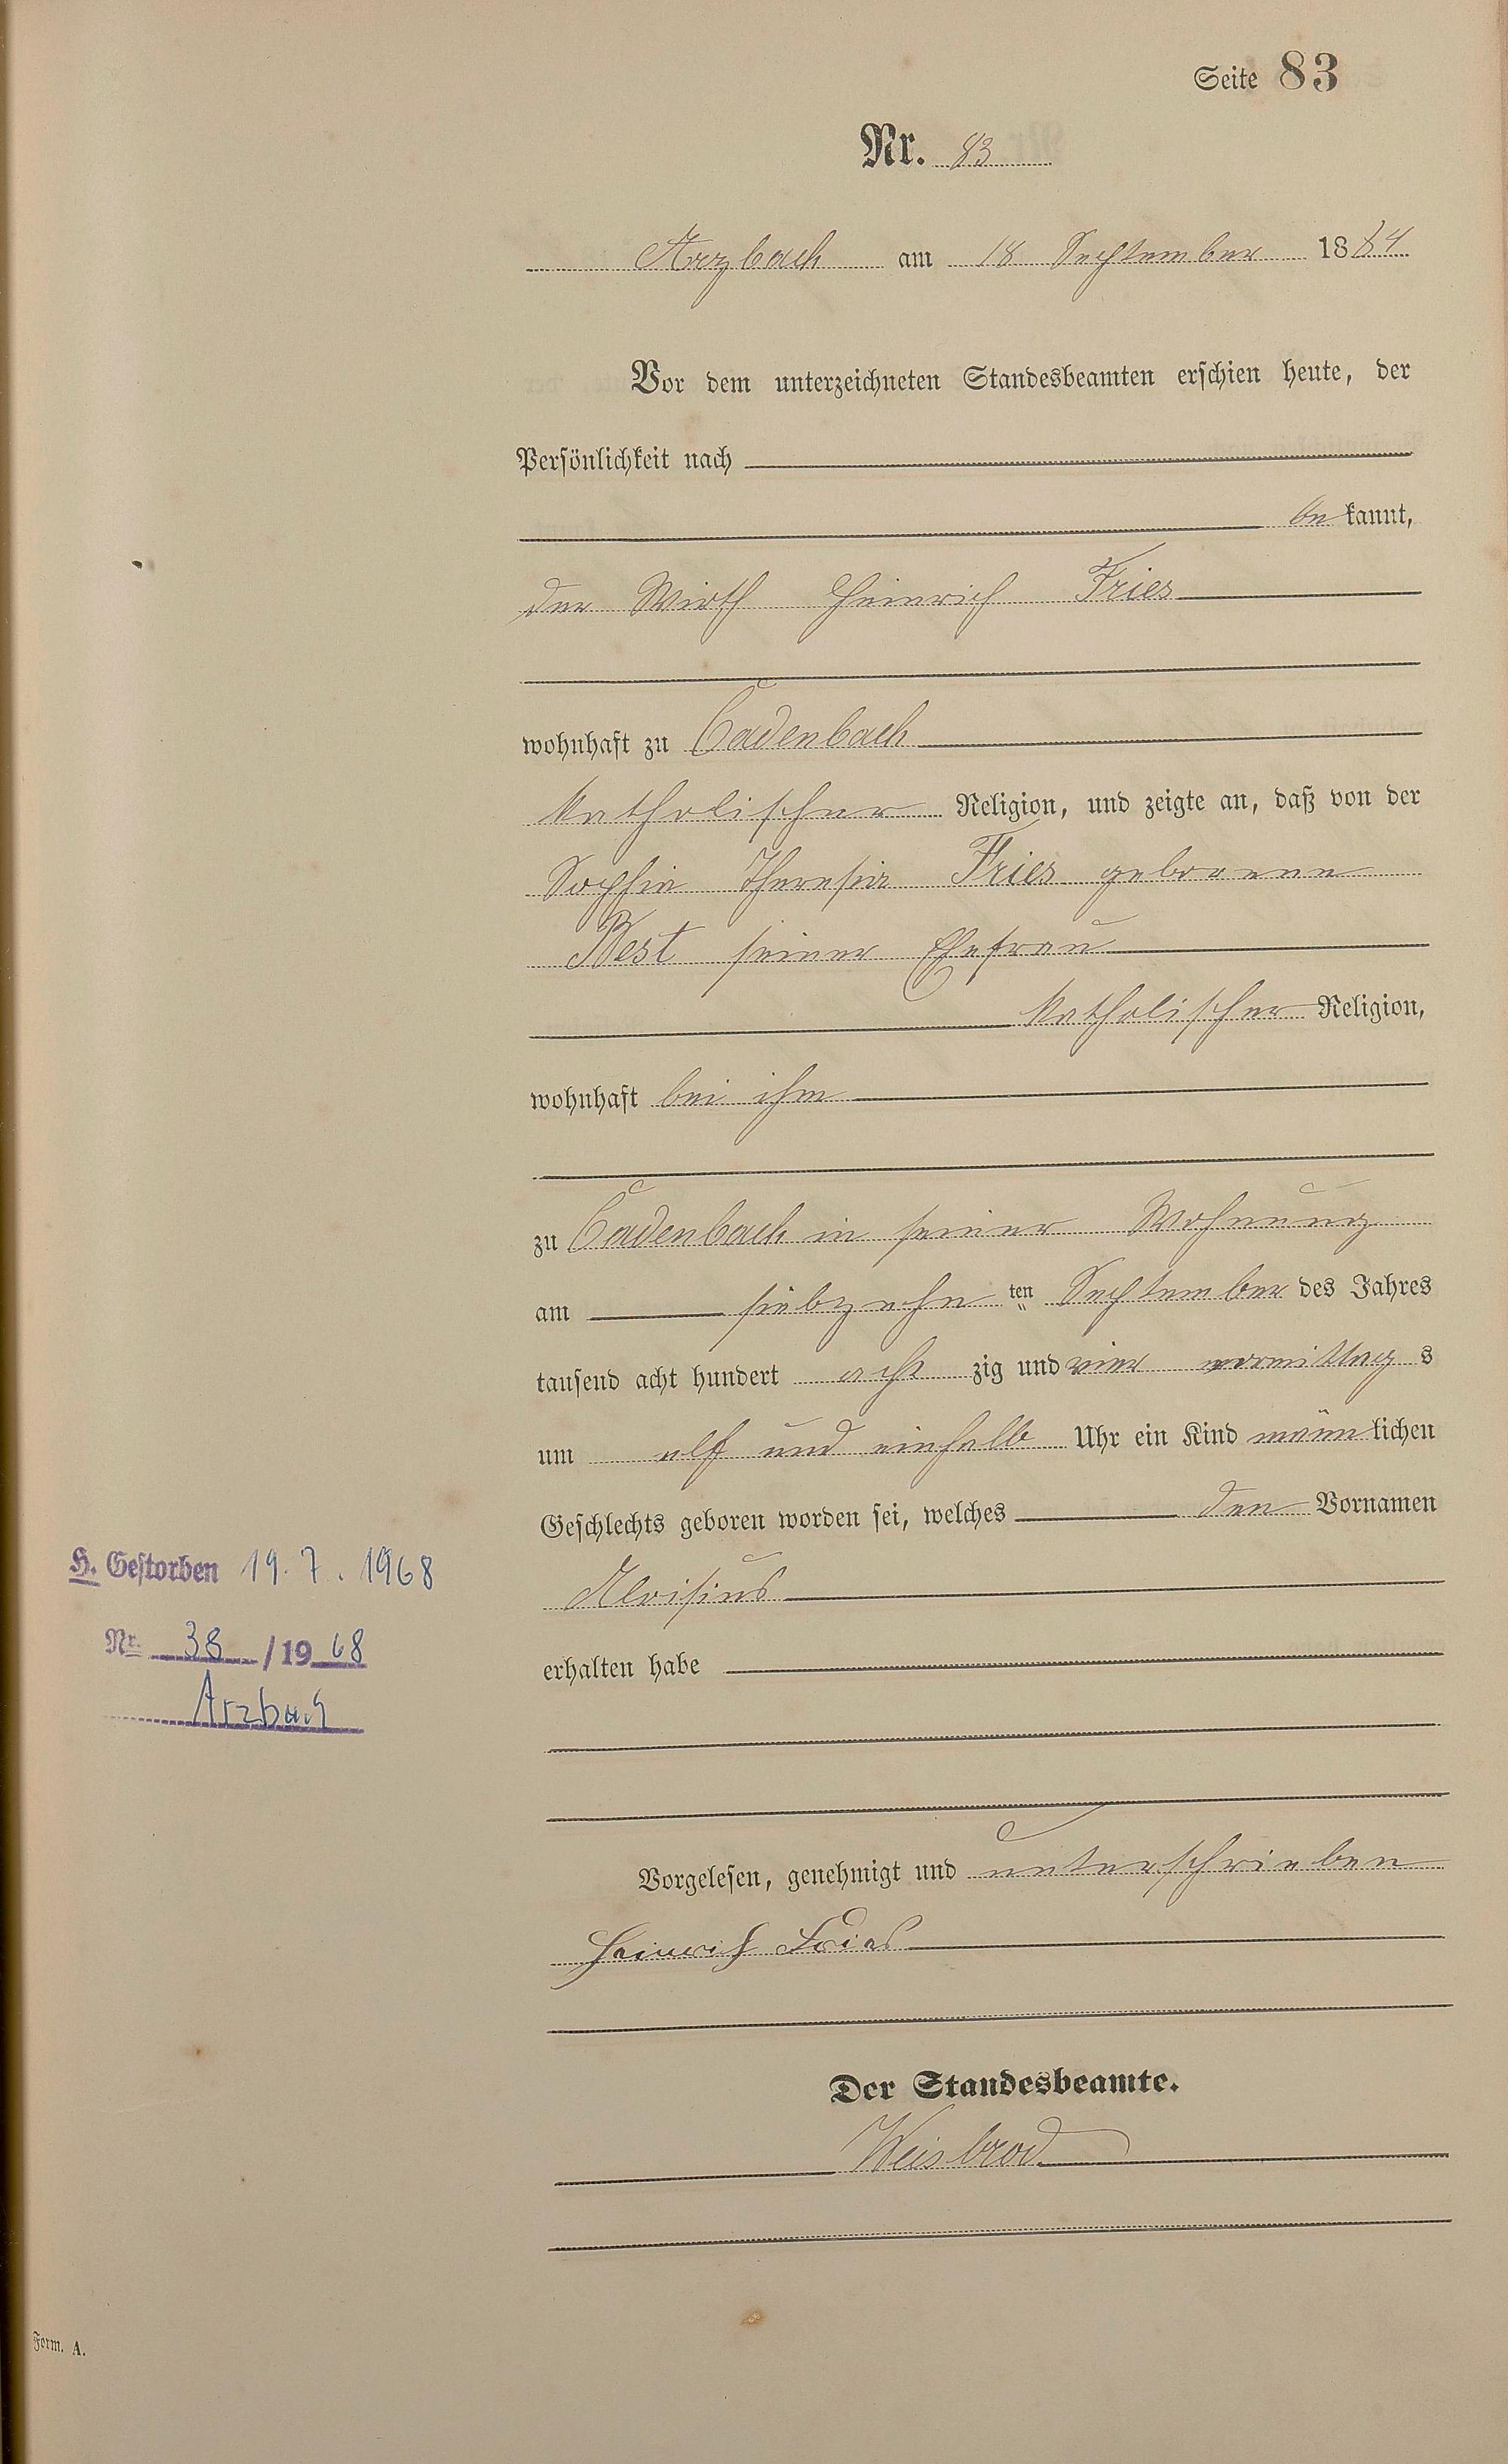 Seite 83
Nr. 83
Arzbach am 18 September 1884
Vor dem unterzeichneten Standesbeamten erschien heute, der
Persönlichkeit nach
be kannt,
der Wirth Heinrich Fries
wohnhaft zu Cadenbach
katholischer Religion, und zeigte an, daß von der
Sophia Theresia Fries geborene
Best seiner Ehefrau
katholischer Religion,
wohnhaft bei ihm
zu Cadenbach in seiner Wohnung
am siebzehn ten September des Jahres
tausend acht hundert acht zig und vier vormittag s
um elf und einhalb Uhr ein Kind männ lichen
Geschlechts geboren worden sei, welches den Vornamen
H. Gestorben 19.7.1968
Aloisius
Nr. 38 /19 68
erhalten habe
Arzbach
Vorgelesen, genehmigt und unterschrieben
Heinrich Fries
Der Standesbeamte.
Weisbrod
Form. A.